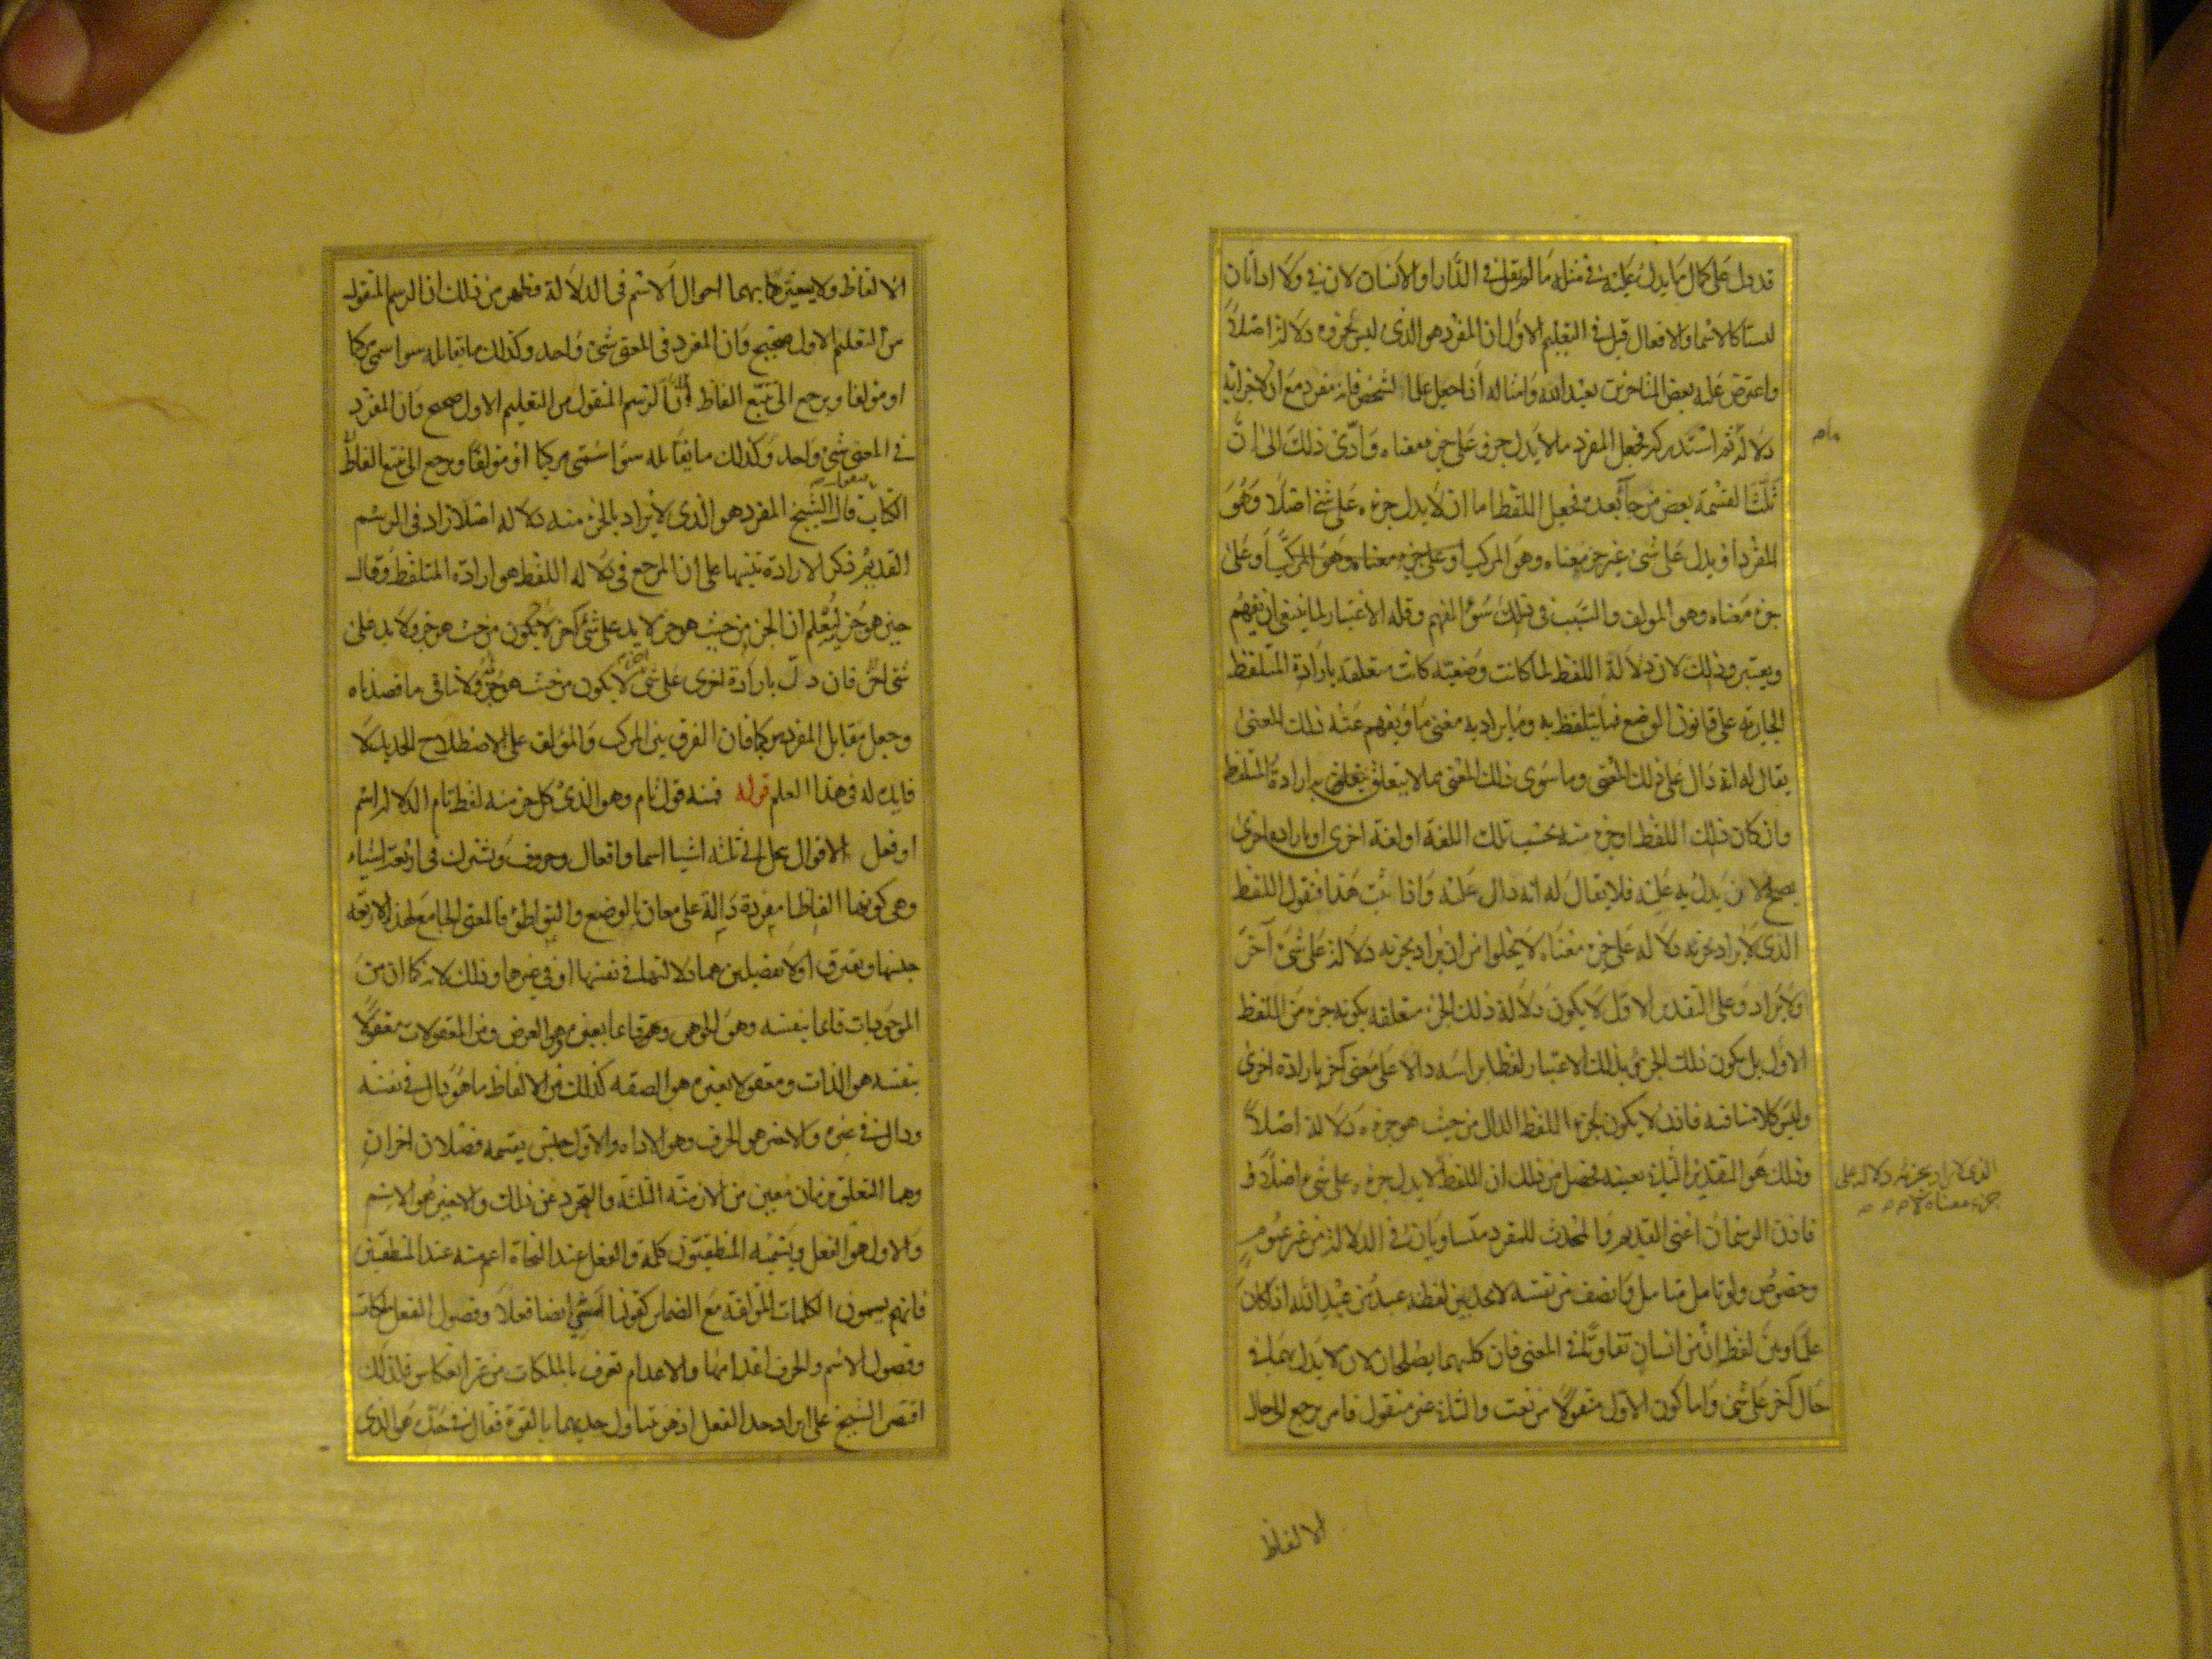 قد دل على كمال ما يدل عليه في مثله ما لم يقل في الدار او لا انسان لان في ولا اداتان
ليستا كالاسماء والافعال قيل في التعليم الاول ان المفرد هو الذي ليس لجزوه دلالة اصلاً
واعترض عليه بعض المتاخرين بعبد الله وامثاله اذا جعل علما لشخص فانه مفرد مع ان لاجزائه
دلالة ثم استدركه فجعل المفرد ما لا يدل جزوه على جزء معناه وادى ذلك الى ان
ثلث القسمة بعض من جاء بعده فجعل اللفظ اما ان لا يدل جزءه على شئ اصلا وهو
المفرد او يدل على شئ غير جزء معناه وهو المركب او على جزء معناه وهو المركب او على
جزء معناه وهو المولف والسبب في ذلك سوء الفهم وقلة الاعتبار لما ينبغي ان يفهم
ويعتبر وذلك لان دلالة اللفظ لما كانت وضعيته كانت متعلقة بارادة المتلفظ
الجارية على قانون الوضع فما يتلفظ به ويراد به معنى ما ويفهم عنه ذلك المعنى
يقال له انه دال على ذلك المعنى وما سوى ذلك المعنى مما لا يتعلق به ارادة المتلفظ
وان كان ذلك اللفظ او جزء منه بحسب تلك اللغة او لغة اخرى او بارادة اخرى
يصلح لان يدل به عليه فلا يقال له انه دال عليه واذا ثبت هذا فنقول اللفظ
الذي لا يراد بجزئه دلالة على جزء معناه لا يخلوا من ان يراد بجزئه دلالة على شئ آخر
او لا يراد وعلى التقدير الاول لا يكون دلالة ذلك الجزء متعلقة بكونه جزء من اللفظ
الاول بل يكون ذلك الجزء بذلك الاعتبار لفظا براسه دالا على معنى آخر بارادة اخرى
وليس كلامنا فيه فاذن لا يكون لجزء اللفظ الدال من حيث هو جزءه دلالة اصلاً
وذلك هو التقدير الثاني بعينه فحصل من ذلك ان اللفظ لا يدل جزءه على شئ اصلا
الذي لا يراد بجزئه دلالة على
جزء معناه
فاذن الرسمان اعني القديم والمحدث للمفرد متساويان في الدلالة من غير عموم
وخصوص ولو تامل متامل وانصف من نفسه لا يجد بين لفظة عبد من عبد الله اذا كان
علما وبين لفظ ان من انسان تفاوتا في المعنى فان كليهما يصلحان لان لا يدل بهما في
حال آخر على شئ واما كون الاول منقولا من نعت والثاني غير منقول فامر يرجع الى حال
الالفاظ
الالفاظ ولا يتغير بهما احوال الاسم في الدلالة فظهر من ذلك ان الرسم المنقول
من التعليم الاول صحيح وان المفرد في المعنى شئ واحد وكذلك ما يقابله سوا سمي مركبا
او مولفا ويرجع الى تتبع الفاظ ان الرسم المنقول من التعليم الاول صحيح وان المفرد
في المعنى شئ واحد وكذلك ما يقابله سوا سمي مركبا او مولفا ويرجع الى تتبع الفاظ
الكتاب قال الشيخ المفرد هو الذي لا يراد بالجزء منه دلالة اصلا زاد في الرسم
القديم ذكر الارادة تنبيها على ان المرجع في دلالة اللفظ هو ارادة المتلفظ وقال
حين هو جزء ليعلم ان الجزء من حيث هو جزء لا يدل على شئ آخر لا يكون من حيث هو جزء ولا يدل على
شئ آخر فان دل بارادة اخرى على شئ لا يكون من حيث هو جزء ولا ينافي ما قصدناه
وجعل مقابل المفرد مركبا فان الفرق بين المركب والمولف على الاصطلاح الجديد لا
فايدة له في هذا العلم قوله فمنه قول تام وهو الذي كل جزء منه لفظ تام الدلالة اسم
او فعل الاقوال ينحل الى ثلثة اشيا اسما وافعال وحروف ويشترك في اربعة اشياء
وهي كونها الفاظا مفردة دالة على معان بالوضع والتواطؤ فالمعنى الجامع لهذه الاربعة
جنسها ويفترق اولا بفصلين هما دلالتها في نفسها او في غيرها وذلك لانه كما ان من
الموجودات قائما بنفسه وهو الجوهر وقائما بغيره وهو العرض ومن المعقولات معقولا
بنفسه هو الذات ومعقولا بغيره هو الصفة كذلك من الالفاظ ما هو دال في نفسه
ودال في غيره والاخير هو الحرف وهو الاداة والاول جنس يقسمه فصلان اخران
وهما التعلق بزمان معين من الازمنة الثلثة والتجرد عن ذلك والاخير هو الاسم
والاول هو الفعل ويسميه المنطقيون كلمة والفعل عند النحاة اعم منه عند المنطقيين
فانهم يسمون الكلمات المولفة مع الضماير كقولنا امشي ايضا فعلا وفصول الفعل ملكات
وفصول الاسم والحرف اعدامها والاعدام تعرف بالملكات من غير انعكاس فلذلك
اقتصر الشيخ على ايراد حد الفعل اذ هو يتناول حديهما بالقوة فقال في حده هو الذي